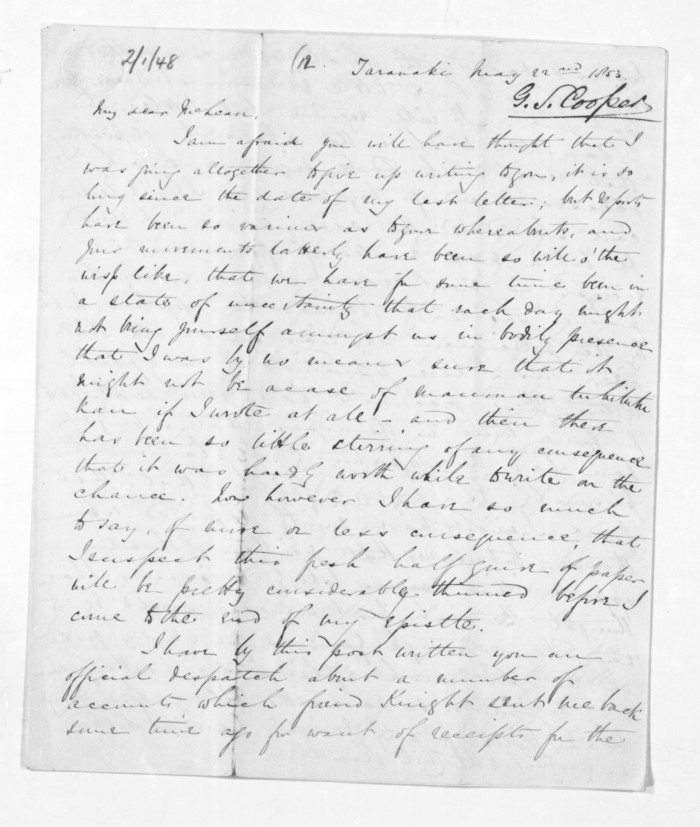 2/1/48
(12. Taranaki May 22nd 1853
G. S. Cooper
My dear McLean,
I am afraid you will have thought that I
was going altogether to give up writing to you, it is so
long since the date of my last letter; but reports
have been so various as to your whereabouts, and
your movements latterly have been so will o' the
wisp like, that we have for some time been in
a state of uncertainty that each day might
not bring yourself amongst us in bodily presence
that I was by no means sure that it
might not be a case of
kau if I wrote at all - and then there
has been so little stirring of any consequence
that it was hardly worth while to write on the
chance. Now however I have so much
to say, of more or less consequence, that
I suspect this fresh half quire of paper
will be pretty considerably thinned before I
come to the end of my epistle.
I have by this post written you an
official despatch about a number of
accounts which friend Knight sent me back
some time ago for want of receipts for the